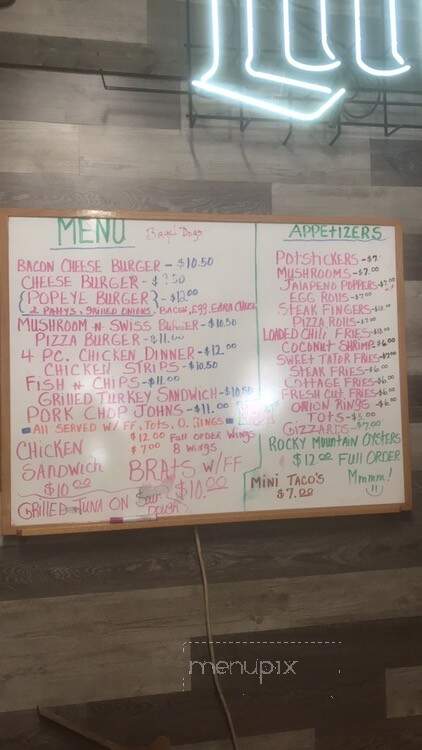 MENU
BACON CHEESE BURGER - $10.50
CHEESE BURGER - $ .50
{POPEYE BURGER} - $13.00
2 PATTYS, GRILLED ONIONS, BACON, EGG, EXTRA CHEESE
MUSHROOM N SWISS BURGER - $10.50
PIZZA BURGER - $11.00
4 PC. CHICKEN DINNER - $12.00
CHICKEN STRIPS - $10.50
FISH N CHIPS - $11.00
GRILLED TURKEY SANDWICH - $10.50
PORK CHOP JOHNS - $11.00
ALL SERVED W/ FF, TOTS, O. RINGS
$12.00 FULL ORDER WINGS
$7.00 8 WINGS
CHICKEN SANDWICH $10.00
BRATS W/FF $10.00
GRILLED TUNA ON SOUR DOUGH
APPETIZERS
POTSTICKERS - $7
MUSHROOMS - $7.00
JALAPENO POPPERS - $7.00
EGG ROLLS - $7.00
STEAK FINGERS
PIZZA ROLLS - $7.00
LOADED CHILI FRIES
COCONUT SHRIMP - $6.00
SWEET TATOR FRIES
STEAK FRIES - $6.00
COTTAGE FRIES - $6.00
FRESH CUT FRIES - $6.00
ONION RINGS - $6.00
TOTS - $5.00
GIZZARDS - $7.00
ROCKY MOUNTAIN OYSTERS
$12.00 FULL ORDER
MINI TACO'S
$7.00
Mmmm!
menupix